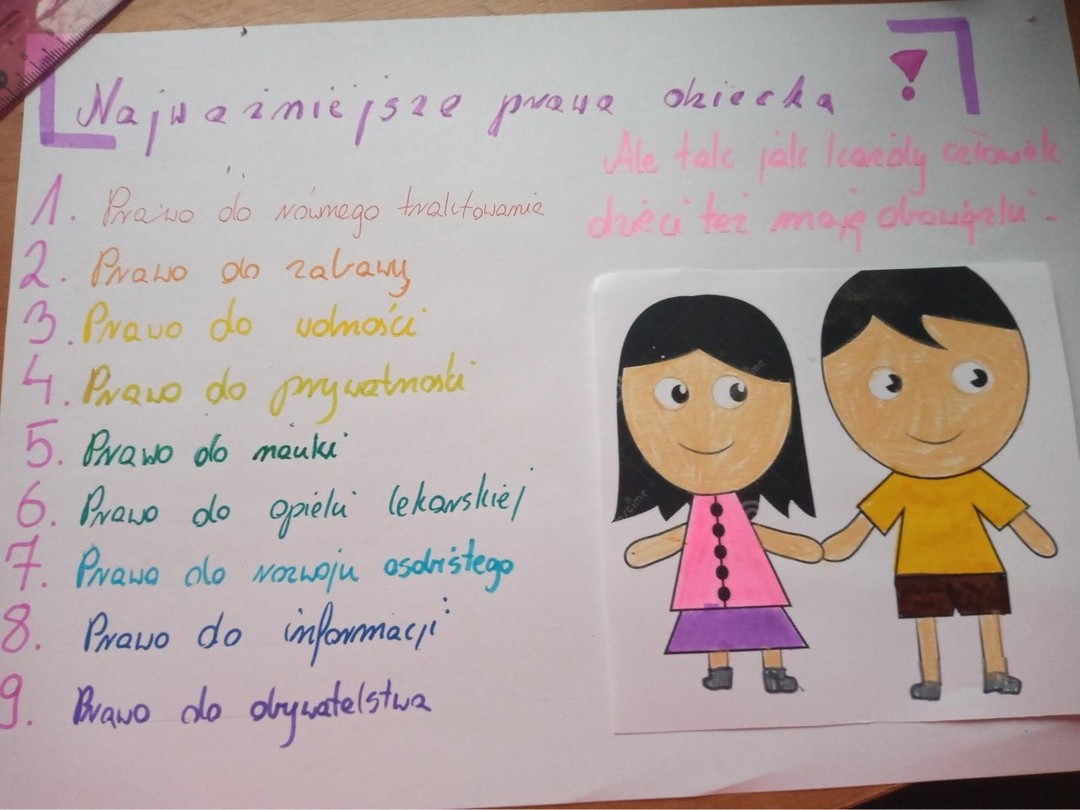 Najważniejsze prawa dziecka !
Ale tak jak każdy człowiek
dzieci też mają obowiązki.
1. Prawo do równego traktowania
2. Prawo do zabawy
3. Prawo do wolności
4. Prawo do prywatności
5. Prawo do nauki
6. Prawo do opieki lekarskiej
7. Prawo do rozwoju osobistego
8. Prawo do informacji
9. Prawo do obywatelstwa